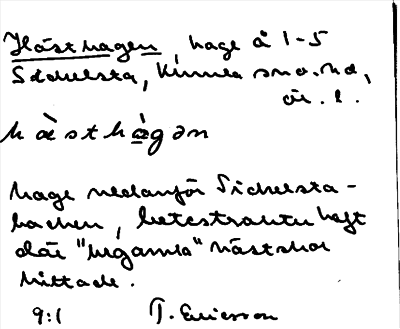 Hästhagen, hage å 1-5
Sichelsta, Kumla sn o. hd,
ör. l.
hästhàgən
hage nedanför Sichelsta-
backen, betestrakten haft
där "urgamla" hästskor
hittade.
9:1 T. Ericsson